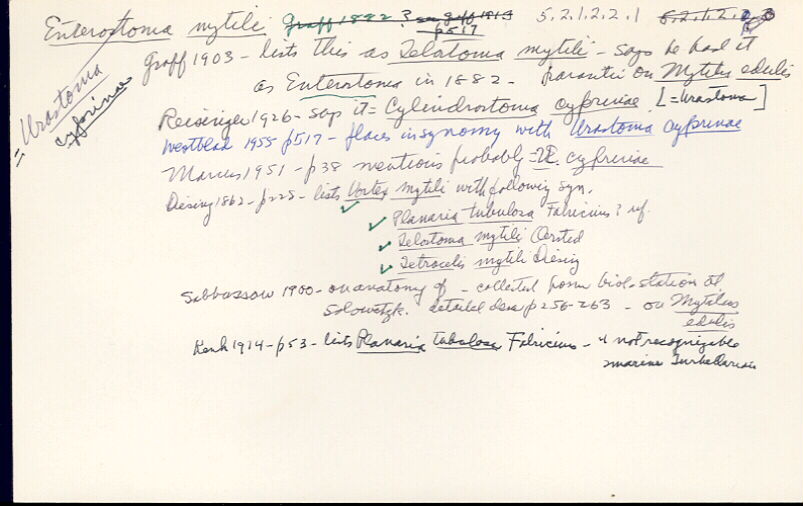 Enterostoma mytili Graff 1882 ? see Graff 1913 p517 5.2.1.2.2.1 5.2.1.2.2.3
Graff 1903 - lists this as Telostoma mytili - says he had it
as Enterostoma in 1882 - parasitic on Mytilus edulis
= Urastoma cyprinae
Reisinger 1926 - says it = Cylindrostoma cyprinae [= Urastoma]
Westblad 1955 p517 - places in synomy with Urastoma cyprinae
Marcus 1951 - p38 mentions probably = U. cyprinae
Diesing 1862 - p228 - lists Vortex mytili with following syn.
✓ Planaria tubulosa Fabricius? ref.
✓ Telostoma mytili Oersted
✓ Tetracelis mytili Diesing
Sabbussow 1900 - on anatomy of - collected from biol. station at
Solowetzk. detailed desc p256-263 - on Mytilus
edulis
1914 - p53 - lists Planaria tubulosa Fabricius - not recognizable
marine Turbellarian